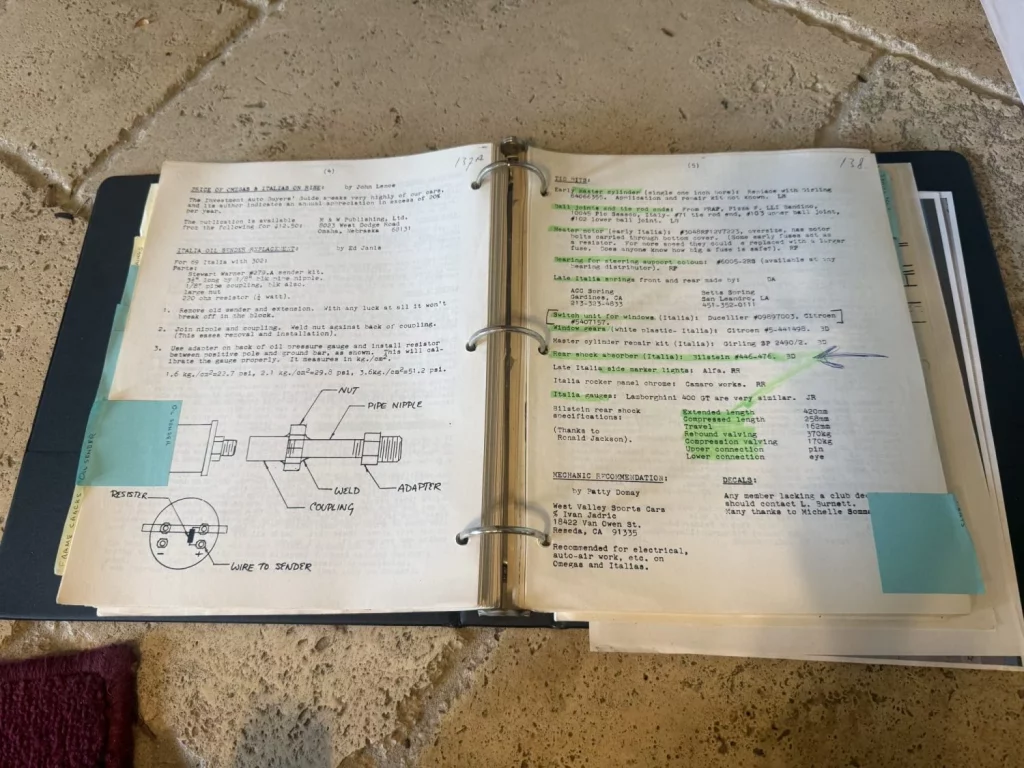 137A
(4)
PRICE OF OMEGAS & ITALIAS ON RISE: by John Lence
The Investment Auto Buyers' Guide speaks very highly of our cars,
and its author indicates an annual appreciation in excess of 20%
per year.
The publication is available
from the following for $12.50:
M & W Publishing, Ltd.
8003 West Dodge Road
Omaha, Nebraska 68131
ITALIA OIL SENDER REPLACEMENT: by Ed Janis
For 69 Italia with 302:
Parts:
Stewart Warner #279-A sender kit.
long by 1/8" blk pipe nipple.
1/8" pipe coupling, blk also.
large nut
270 ohm resistor (½ watt).
1. Remove old sender and extension. With any luck at all it won't
break off in the block.
2. Join nipple and coupling. Weld nut against back of coupling.
(This eases removal and installation).
3. Use adapter on back of oil pressure gauge and install resistor
between positive pole and ground bar, as shown. This will cal-
ibrate the gauge properly. It measures in kg./cm².
1.6 kg./cm²=22.7 psi, 2.1 kg./cm²=29.8 psi, 3.6kg/cm²=51.2 psi.
NUT
PIPE NIPPLE
WELD
ADAPTER
COUPLING
RESISTER
WIRE TO SENDER
- +
FRAME CRACKS
OIL SENDER
138
(5)
TID BITS:
Early master cylinder (single one inch bore): Replace with Girling
#4066355. Application and repair kit not known. LB
Ball joints and tie rod ends: From
Italy- #71 tie rod end, #103 upper ball joint,
#102 lower ball joint. LB
Heater motor (early Italia): oversize, has motor
bolts carried through bottom cover. (Some early fuses act as
a resistor. For more speed they could be replaced with a larger
fuse. Does anyone know how big a fuse is safe?). RF
Bearing for steering support column: #6005-2RS (available at any
bearing distributor). RF
Late Italia springs front and rear made by: DA
ACC Spring
Gardines, CA
213-323-4833
Betts Spring
San Leandro, LA
451-352-0111
Switch unit for windows (Italia): Ducellier #09897003, Citroen
#5407157.
Window gears (white plastic- Italia): Citroen #5-441495. JD
Master cylinder repair kit (Italia): Girling SP 2490/2. JD
Rear shock absorber (Italia): Bilstein #446-476. JD
Late Italia side marker lights: Alfa. RR
Italia rocker panel chrome: Camaro works. RR
Italia gauges: Lamborghini 400 GT are very similar. JR
Bilstein rear shock
specifications:
(Thanks to
Ronald Jackson).
Extended length 420mm
Compressed length 258mm
Travel 162mm
Rebound valving 370kg
Compression valving 170kg
Upper connection pin
Lower connection eye
MECHANIC RECOMMENDATION:
by Patty Domay
West Valley Sports Cars
% Ivan Jadric
18422 Van Owen St.
Reseda, CA 91335
Recommended for electrical,
auto-air work, etc. on
Omegas and Italias.
DECALS:
Any member lacking a club
should contact L. Burnett.
Many thanks to Michelle